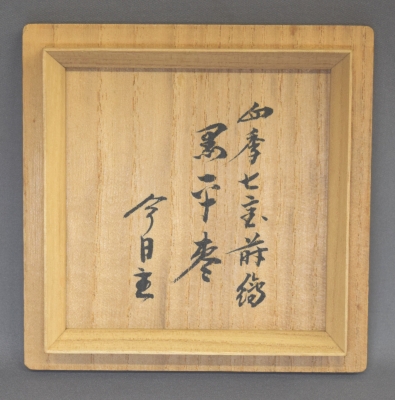 四季七宝蒔絵
黒平棗
今日主